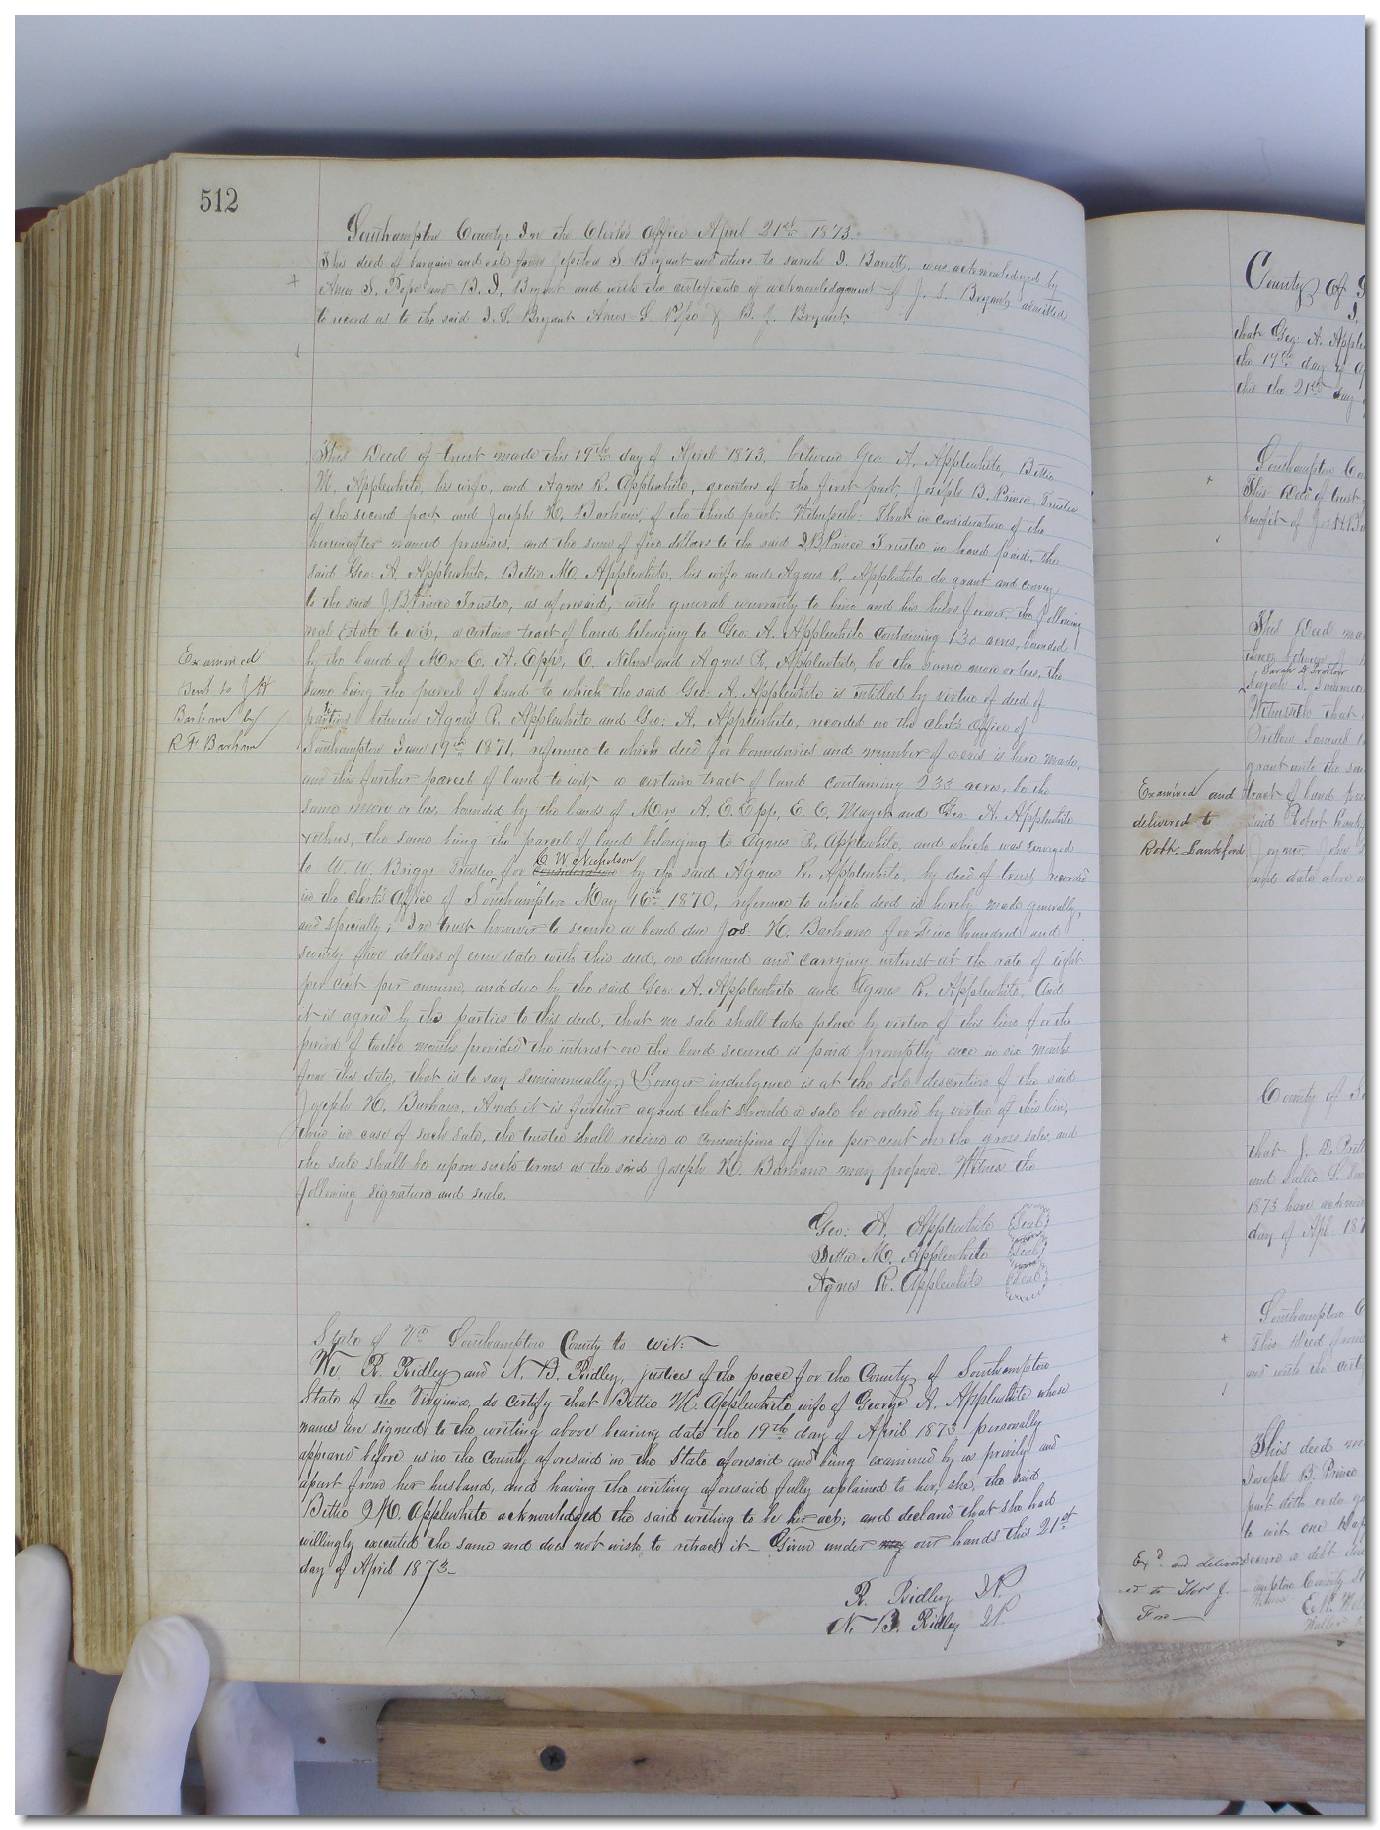 512
Southampton County, In the Clerks Office April 21st 1873.
This deed of bargain and sale from S Bryant and others to Sarah I. Barrett, was acknowledged by
Amos S. Pope and B. J. Bryant and with the certificate of acknowledgment of J. S. Bryant, admitted
to record as to the said J. S. Bryant Amos S Pope & B. J. Bryant.
This Deed of trust made this 19th day of April 1873, between Geo A. Applewhite, Bettie
M. Applewhite, his wife, and Agnes R. Applewhite, grantors of the first part, Joseph B. Prince, Trustee
of the second part and Joseph H. Barham, of the third part. Witnesseth: That in consideration of the
hereinafter named promises, and the sum of five dollars to the said J B Prince Trustee in hand paid, the
said Geo: A. Applewhite, Bettie M. Applewhite, his wife and Agnes R. Applewhite do grant and convey
to the said J. B. Prince Trustee, as aforesaid, with general warranty to him and his heirs forever, the following
real Estate to wit, a certain tract of land belonging to Geo. A. Applewhite containing 130 acres, bounded
by the land of Mrs E. A. Epps, C. Nelms and Agnes R. Applewhite, be the same more or less, the
same being the parcel of land to which the said Geo. A. Applewhite is entitled by virtue of deed of
partition between Agnes R. Applewhite and Geo: A. Applewhite, recorded in the clerk's office of
Southampton June 19th 1871, reference to which deed for boundaries and number of acres is here made,
and this further parcel of land to wit, a certain tract of land containing 233 acres, be the
same more or less, bounded by the lands of Mrs A. E. Epps, E. C. and Geo. A. Applewhite
& others, the same being the parcel of land belonging to Agnes R. Applewhite, and which was conveyed
to W. W. Briggs Trustee for E. W. Nicholson by the said Agnes R. Applewhite, by deed of trust recorded
in the clerk's office of Southampton May 16th 1870, reference to which deed is hereby made generally,
and specially; In trust however to secure a bond due Jos. H. Barham for Two hundred and
seventy five dollars of even date with this deed, on demand and carrying interest at the rate of eight
per cent per annum, and due by the said Geo: A. Applewhite and Agnes R. Applewhite. And
it is agreed by the parties to this deed, that no sale shall take place by virtue of this lien for the
period of twelve months provided the interest on the bond secured is paid promptly once in six months
from this date, that is to say semiannually, Longer indulgence is at the sole descretion of the said
Joseph H. Barham. And it is further agreed that should a sale be ordered by virtue of this lien,
then in case of such sale, the trustee shall receive a commission of five per cent on the gross sales and
the sale shall be upon such terms as the said Joseph H. Barham may propose. Witness the
following signatures and seals.
Geo: A. Applewhite (Seal)
Bettie M. Applewhite (Seal)
Agnes R. Applewhite (Seal)
State of Va Southampton County to wit:
We R. Ridley and N. B. Ridley, justices of the peace for the County of Southampton
State of the Virginia, do certify that Bettie M. Applewhite wife of George A. Applewhite whose
names are signed to the writing above bearing date the 19th day of April 1873 personally
appeared before us in the County aforesaid in the State aforesaid and being examined by us privily and
apart from her husband, and having the writing aforesaid fully explained to her, she, the said
Bettie M. Applewhite acknowledged the said writing to be her act; and declared that she had
willingly executed the same and does not wish to retract it. Given under my our hands this 21st
day of April 1873.
R. Ridley J.P.
N. B. Ridley J.P.
Examined
Sent to J H
Barham by
R F Barham
County of
that Geo: A. Apple
the 19th day of
this the 21st day
Southampton Co
This Deed of trust
benefit of Jos H Ba
This Deed
Examined and
delivered to
Robt. Lankford
County of
1873 have
day of Apl. 187
Southampton C
This deed
Joseph B. Prince
Exd. and deliver
ed to Thos J.